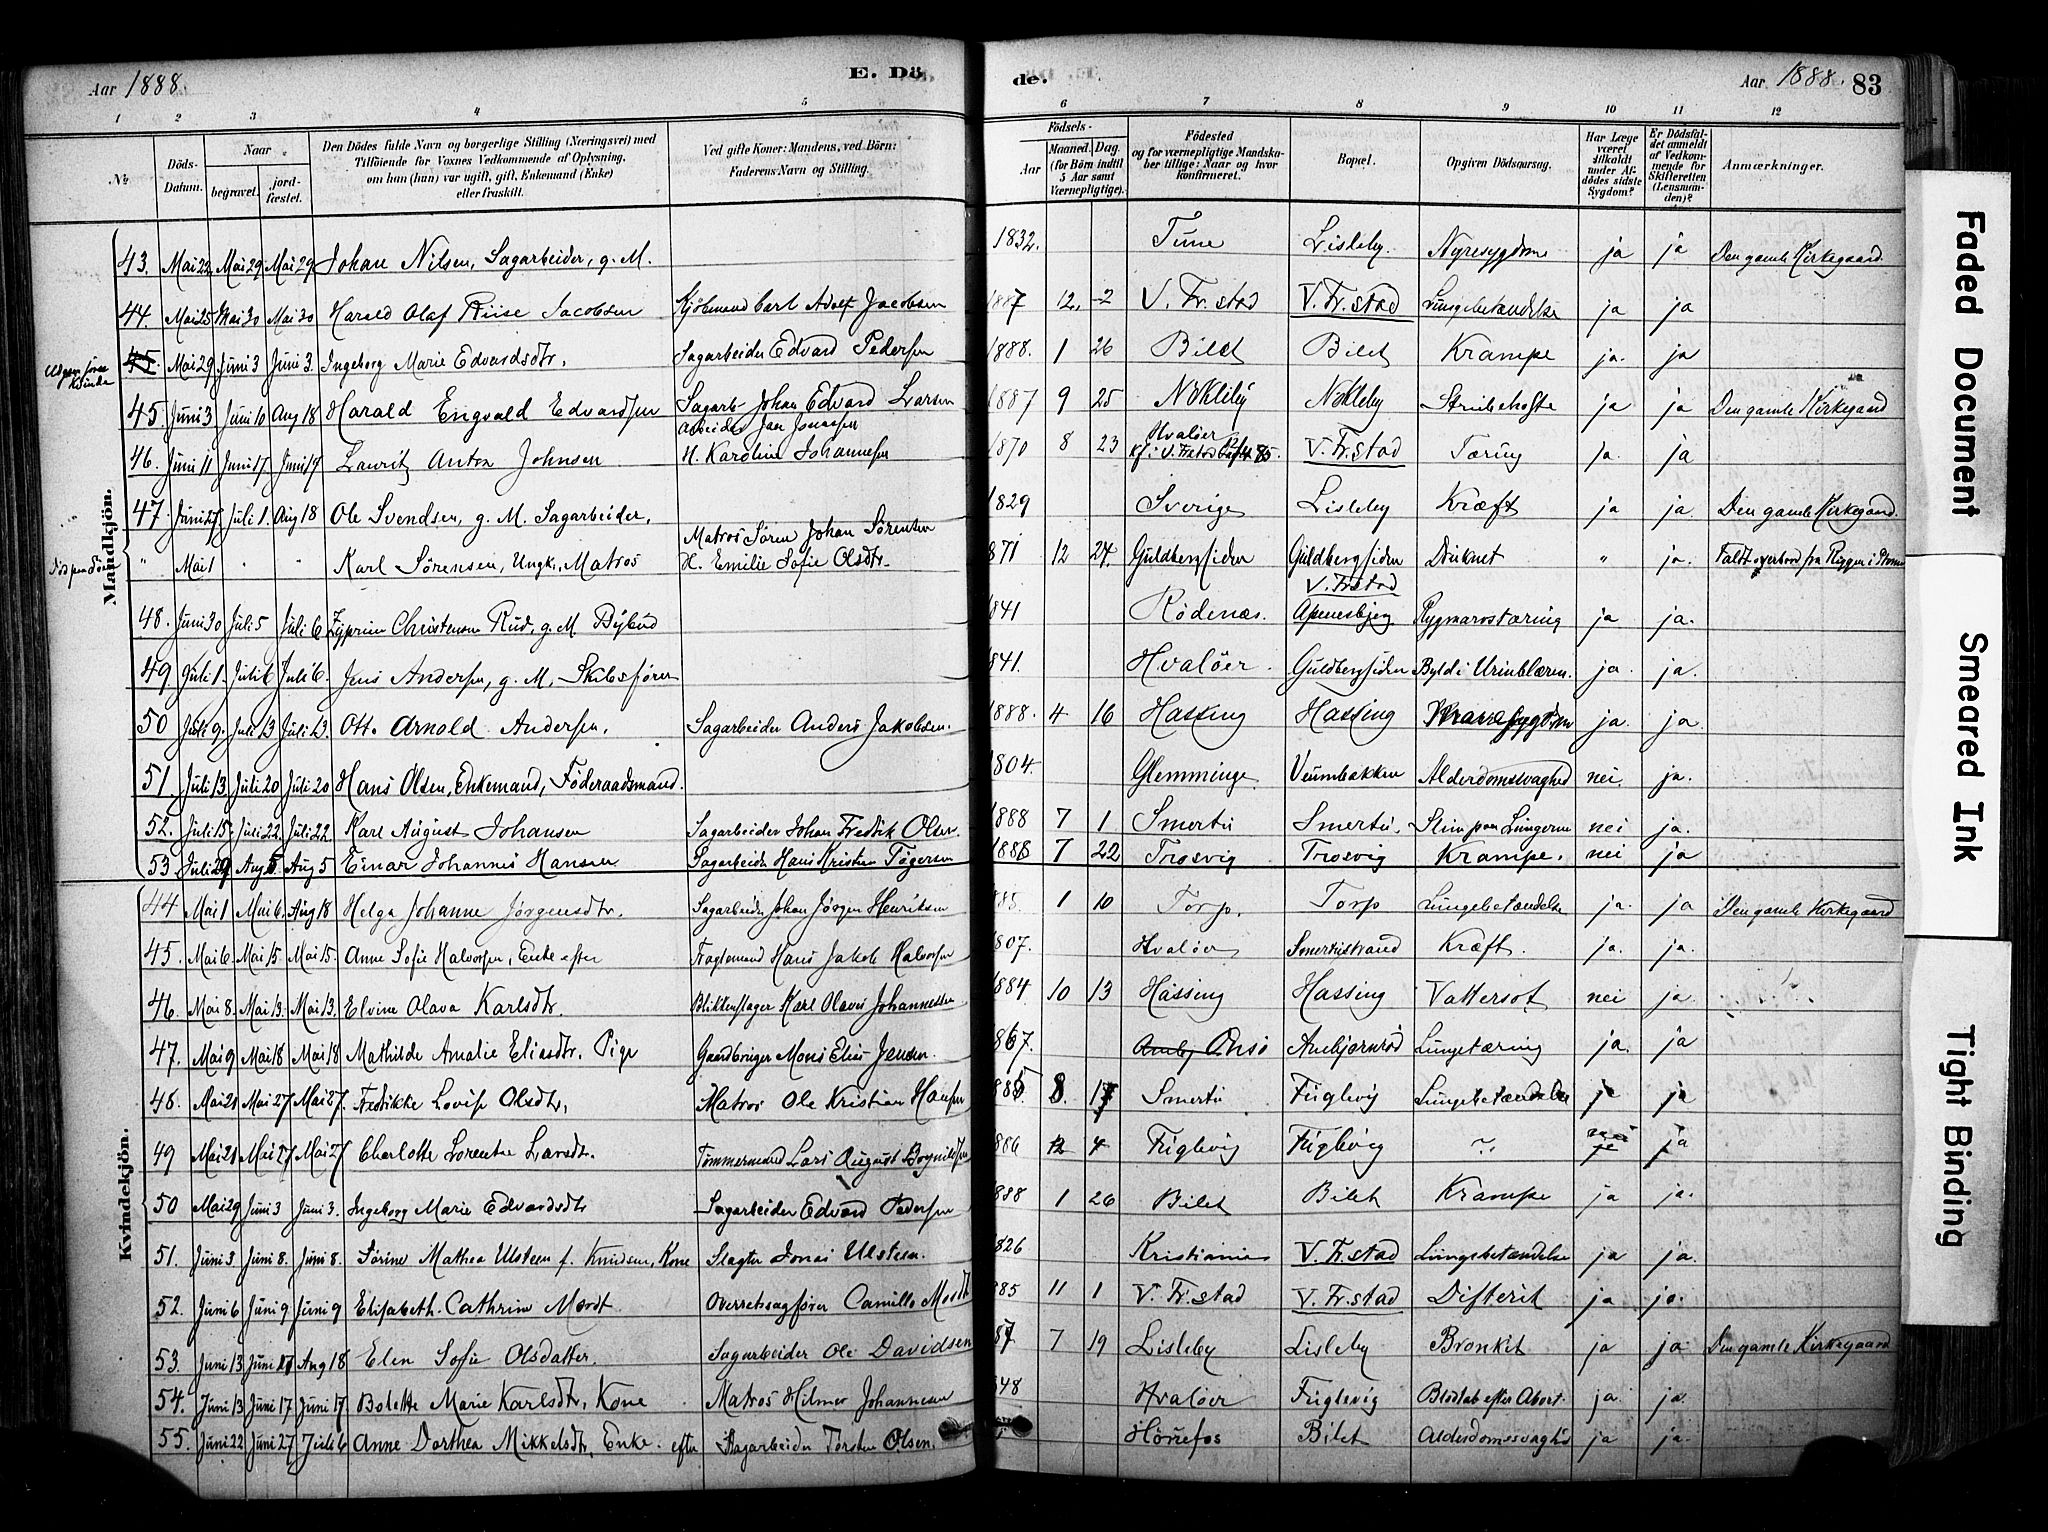 Aar 1888. E. Dö
de. Aar 1888. 83
1 2 3 4 5 6 7 8 9 10 11 12
№ Döds-Datum. Naar begravet. jordfæstet. Den Dödes fulde Navn og borgerlige Stilling (Næringsvei) med Tilföiende for Voxnes Vedkommende af Oplysning, om han (hun) var ugift, gift, Enkemand (Enke) eller fraskilt. Ved gifte Koner: Mandens, ved Börn: Faderens Navn og Stilling.
Födsels- Aar Maaned. Dag. (for Börn indtil 5 Aar samt Værnepligtige). Födested og for værnepligtige Mandskaber tillige: Naar og hvor konfirmeret. Bopæl. Opgiven Dödsaarsag. Har Læge været tilkaldt under Afdödes sidste Sygdom? Er Dödsfaldet anmeldt af Vedkommende for Skifteretten (Lensmanden)? Anmærkninger.
Mandkjön.
43. Mai 22 Mai 29 Mai 29 Johan Nilsen, Sagarbeider, g. M. 1832. Tune Lisleby. Nyresygdom ja ja Den gamle Kirkegaard.
44. Mai 25 Mai 30 Mai 30 Harald Olaf Riise Jacobsen Kjöbmand Carl Adolf Jacobsen 1887 12. 2 V. Fr.stad V. Fr.stad Lungebetændelse ja ja
45. Mai 29 Juni 3 Juni 3. Ingeborg Marie Edvardsdtr. Sagarbeider Edvard Pedersen 1888. 1 26 Bilet Bilet Krampe ja. ja
45. Juni 3 Juni 10 Aug 18 Harald Engvald Edvardsen Sagarb. Johan Edvard Larsen 1887 9 25 Nökleby Nökleby Strubehoste ja ja Den gamle Kirkegaard
46. Juni 11 Juni 17 Juni 19 Lauritz Anton Johnsen Arbeider Jan Jonassen H. Karoline Johannesen 1870 8 23 Hvalöer V. Fr.stad Tæring ja. ja
47 Juni 27. Juli 1. Aug 18 Ole Svendsen, g. M. Sagarbeider. 1829 Sverige Lisleby Kræft ja ja. Den gamle Kirkegaard.
" Mai 1 " " Karl Sörensen, Ungk., Matros Matros Sören Johan Sörensen H. Emilie Sofie Olsdtr. 871 12 24. Guldbergsiden Guldbergsiden V. Frstad Druknet " ja. Faldt overbord fra Riggen i
48. Juni 30 Juli 5 Juli 6 Zyprian Christensen Rud, g. M. Bybud 1841 Rödenæs. Apenesbjerg Rygmarvstæring ja ja.
49 Juli 1. Juli 6 Juli 6. Jens Andersen, g. M, Skibsförer 1841. Hvalöer. Guldbergsiden Byld i Urinblæren. ja. ja.
50 Juli 9. Juli 13 Juli 13. Otto Arnold Andersen. Sagarbeider Anders Jakobsen. 1888. 4 16 Hassing Hassing ja. ja.
51. Juli 13 Juli 20 Juli 20 Hans Olsen, Enkemand, Föderaadsmand. 1804. Glemminge. Veumbakken Alderdomssvaghed nei. ja.
52. Juli 15. Juli 22. Juli 22 Karl August Johansen Sagarbeider Johan Fredrik Olsen 1888 7 1 Smertu Smertu. Slim paa Lungerne nei ja.
53 Juli 29 Aug 5 Aug 5 Einar Johannes Hansen Sagarbeider Hans Kristian Tögersen 1888 7 22 Trosvig Trosvig Krampe. nei ja
Kvindekjön.
44 Mai 1 Mai 6. Aug 18 Helga Johanne Jörgensdtr. Sagarbeider Johan Jörgen Henriksen 885. 1 10 Torp. Torp Lungebetændelse ja. ja Den gamle Kirkegaard
45. Mai 6. Mai 15 Mai 15. Anne Sofie Halvorsen, Enke efter Fragtemand Hans Jakob Halvorsen 1807. Hvalöer Smertustrand Kræft. ja. ja.
46. Mai 8. Mai 13. Mai 13. Elvine Olava Karlsdtr. Blikkenslager Karl Olaus Johannessen 1884 10 13 Hassing Hassing Vattersot nei ja.
47. Mai 9 Mai 18 Mai 18 Mathilde Amalie Eliasdtr. Pige Gaardbruger Mons Elias Jensen. 867. Onsö Ambjørnröd Lungetæring ja. ja
48. Mai 21 Mai 27 Mai 27. Fredrikke Lovise Olsdtr, Matros Ole Kristian Hansen 885 8. 17 Smertu Fuglevig Lungebetændelse ja ja
49 Mai 21 Mai 27 Mai 27 Charlotte Lorentse Larsdtr. Tømmermand Lars August 886 12 4 Fuglevig Fuglevig " nei ja
50 Mai 29 Juni 3 Juni 3. Ingeborg Marie Edvardsdtr Sagarbeider Edvard Pedersen 888 1 26 Bilet Bilet Krampe ja ja.
51. Juni 3 Juni 8. Juni 8. Sörine Mathea Ulsteen f. Knudsen, Kone Slagter Jonas Ulsteen. 826 Kristiania V. Fr.stad Lungebetændelse ja ja.
52. Juni 6 Juni 9 Juni 9 Elisabeth Cathrine Mordt Overretssagförer Camillo Mordt 885 11 1 V. Fr.stad V. Fr.stad Difterit ja ja.
53. Juni 13 Juni 17 Aug 18 Elen Sofie Olsdatter. Sagarbeider Ole Davidsen 87 7 19 Lisleby Lisleby Bronkit ja ja Den gamle Kirkegaard
54. Juni 13 Juni 17 Juni 17 Bolette Marie Karlsdtr, Kone Matros Hilmer Johannesen 848 Hvalöer Fuglevig Blodtab efter Abort. ja. ja.
55. Juni 22 Juni 27 Juli 6 Anne Dorthea Mikkelsdtr, Enke efter Sagarbeider Torsten Olsen. Hönefos Bilet Alderdomssvaghed ja ja.
Faded Document
Smeared Ink
Tight Binding